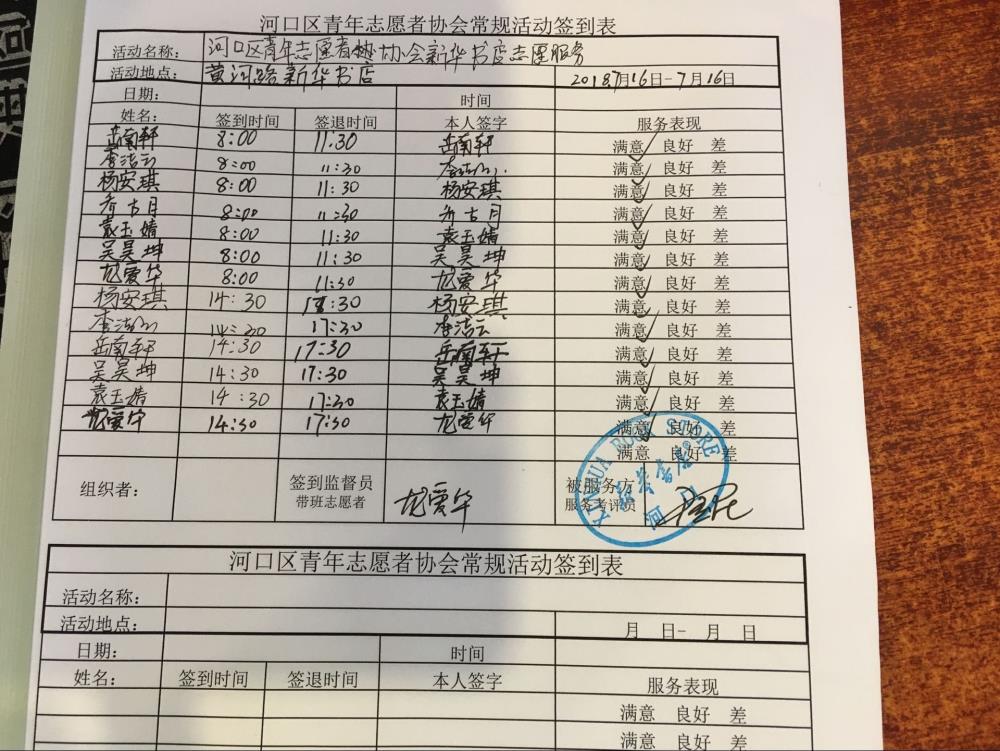 河口区青年志愿者协会常规活动签到表
活动名称： 河口区青年志愿者协会新华书店志愿服务
活动地点： 黄河路新华书店 2018.7月16日-7月16日
日期： 时间
姓名： 签到时间 签退时间 本人签字 服务表现
岳南轩 8:00 11:30 岳南轩 满意 良好 差
李洁云 8:00 11:30 李洁云 满意 良好 差
杨安琪 8:00 11:30 杨安琪 满意 良好 差
乔古月 8:00 11:30 乔古月 满意 良好 差
袁玉婧 8:00 11:30 袁玉婧 满意 良好 差
吴昊坤 8:00 11:30 吴昊坤 满意 良好 差
尤爱华 8:00 11:30 尤爱华 满意 良好 差
杨安琪 14:30 :30 杨安琪 满意 良好 差
李洁云 14:30 17:30 李洁云 满意 良好 差
岳南轩 14:30 17:30 岳南轩 满意 良好 差
吴昊坤 14:30 17:30 吴昊坤 满意 良好 差
袁玉婧 14:30 17:30 袁玉婧 满意 良好 差
尤爱华 14:30 17:30 尤爱华 满意 良好 差
满意 良好 差
组织者： 签到监督员 尤爱华 被服务方
带班志愿者 服务考评员
XINHUA BOOK STORE
新华书店
河口
河口区青年志愿者协会常规活动签到表
活动名称：
活动地点： 月 日- 月 日
日期： 时间
姓名： 签到时间 签退时间 本人签字 服务表现
满意 良好 差
满意 良好 差